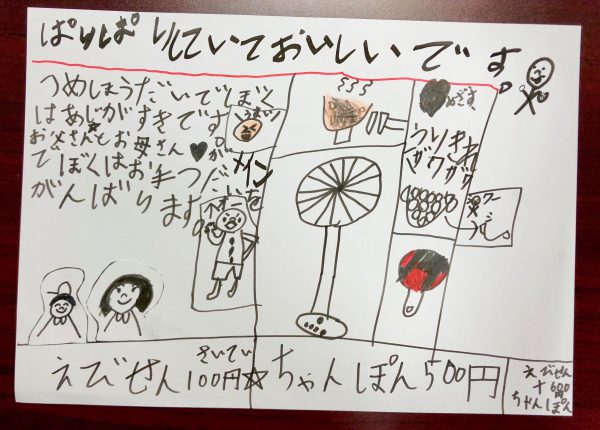 ぱりぱりしていておいしいです。
つめしょうだいでぼく
はあじがすきです。
お父さんとお母さん♥が
てぼくはお手つだいを
がんばります。
うまい
メイン
へオー
めです
うりきれ
ザワザワ
えびせん
さいてい
100円☆
ちゃんぽん500円
えびせん
+600円
ちゃんぽん